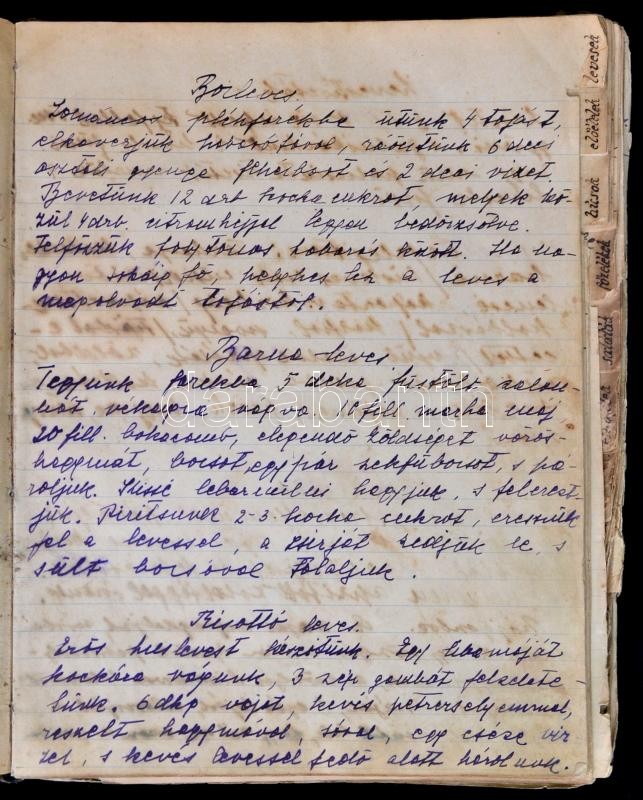 Borleves.
Zománcos pléhfazékba ütünk 4 tojást,
elkeverjük habaróval, ráöntünk 6 deci
asztali gyenge fehérbort és 2 deci vizet.
Bevetünk 12 drb kocka cukrot, melyek kö-
zül 4 drb. citromhéjjal legyen bedörzsölve.
Felfőzük folytonos habarás között. Ha na-
gyon sokáig fő, pelyhes lesz a leves a
megolvadt tojástól.
Barna leves.
Tegyünk fazékba 5 deka füstölt szalon-
nát, vékonyra vágva. 10 fill. marha máj
20 fill. elegendő zöldséget vörös-
hagymát, borsot, egy pár szegfűborsot, s pá-
roljuk. Kissé lebarnulni hagyjuk, s felereszt-
jük. Pirítsunk 2-3. kocka cukrot, eresszük
fel a levessel, a zsírját szedjük le, s
sült borsóval tálaljuk.
Risottó leves.
Erős huslevest készítünk. Egy libamáját
kockára vágunk, 3 szép gombát felszele-
lünk. 6 dkg vajat, kevés petrezselyemmel,
reszelt hagymával, sóval, egy csésze víz-
zel, s kevés levessel fedő alatt párolunk.
levesek
előételek
húsok
főzelékek
saláták
darabanth